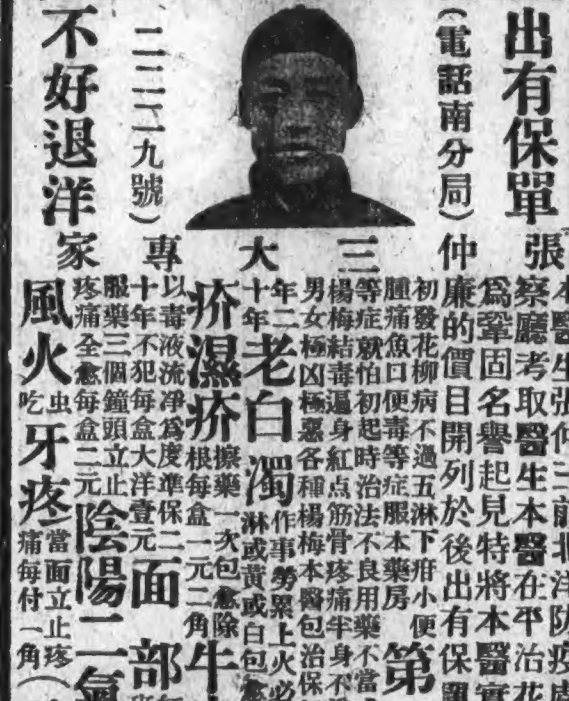 出有保單
(電話南分局)
二二一九號)
不好退洋
張仲三大專家
本醫生張仲三前北洋防疫處
察廳考取醫生本醫在平治花
爲鞏固名譽起見特將本醫實
廉的價目開列於後出有保單
初發花柳病不過五淋下疳小便
腫痛魚口便毒等症服本藥房
第
等症就怕初起時治法不良用藥不當
楊梅結毒遍身紅点筋骨疼痛半身不
男女極凶極惡各種楊梅本醫包治保
年二
十年
老白濁
作事勞累上火必
淋或黃或白包愈
疥濕疥
擦藥一次包愈除
根每盒一元二角
牛
以毒液流凈爲度準保二
十年不犯每盒大洋壹元
面部
服藥三個鐘頭立止
疼痛全愈每盒二元
陰陽二氣
風火
虫
吃
牙疼
當面立止疼
痛每付一角(